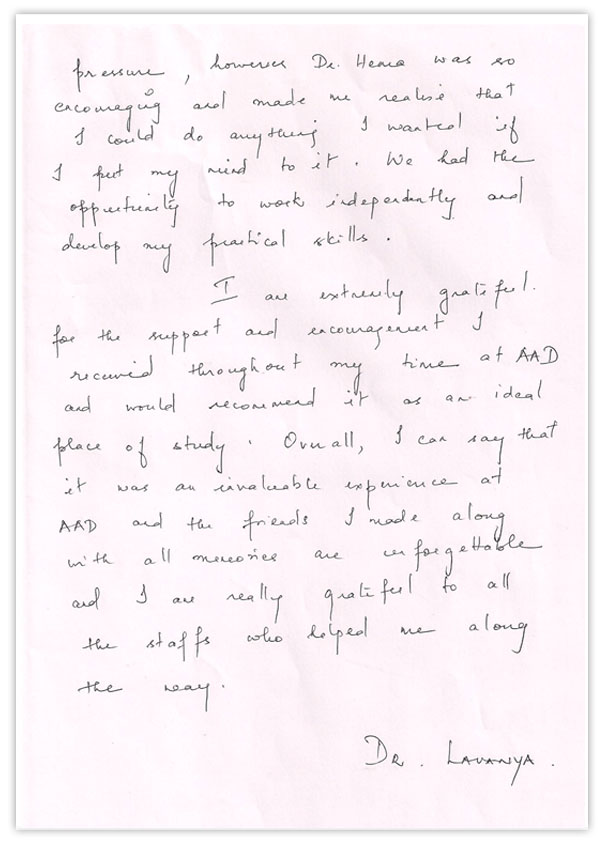 pressure, however Dr. Hema was so
encouraging and made me realise that
I could do anything I wanted if
I put my mind to it. We had the
opportunity to work independently and
develop my practical skills.
I am extremely grateful.
for the support and encouragement I
received throughout my time at AAD
and would recommend it as an ideal
place of study. Overall, I can say that
it was an invaluable experience at
AAD and the friends I made along
with all memories are unforgettable
and I am really grateful to all
the staffs who helped me along
the way.
DR. LAVANYA.